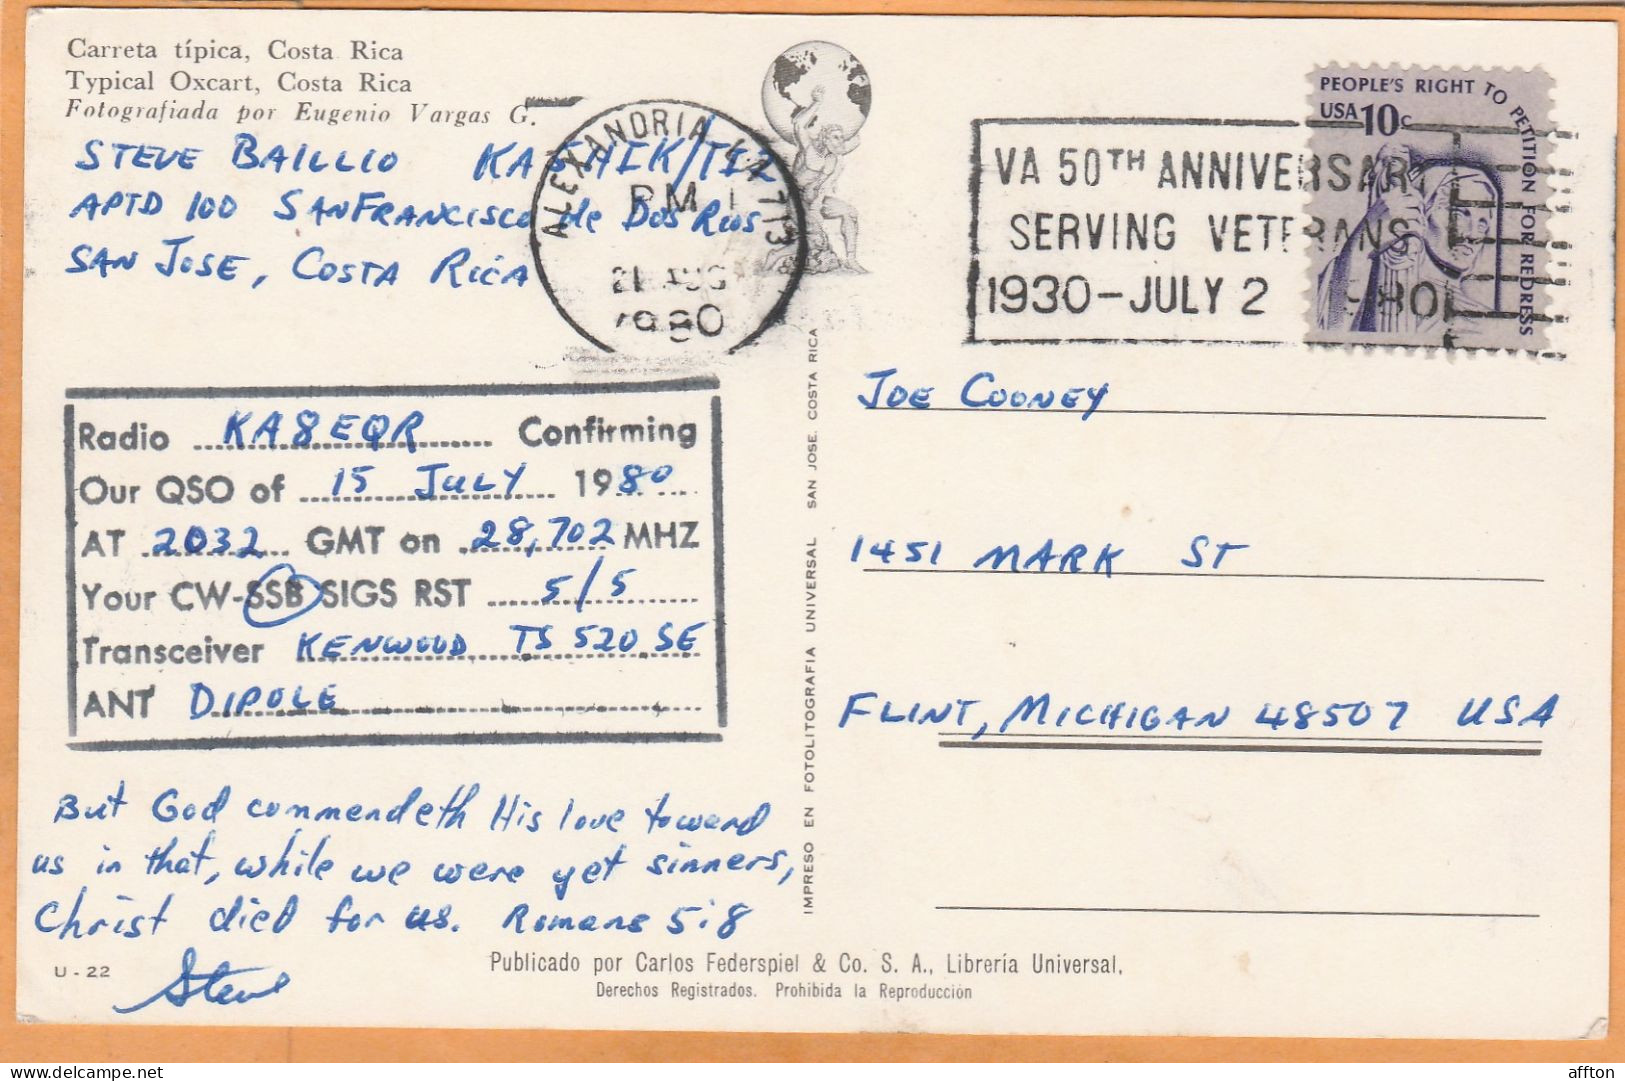 Carreta típica, Costa Rica
Typical Oxcart, Costa Rica
Fotografiada por Eugenio Vargas G.
STEVE BAILLIO
APTD 100 SANFRANCISCO de DOS RIOS
SAN JOSE, COSTA RICA
ALEXANDRIA LA 713
PM
21 AUG
1980
VA 50TH ANNIVERSARY
SERVING VETERANS
1930-JULY 2 1980
PEOPLE'S RIGHT TO PETITION FOR REDRESS
USA 10c
Radio KA8EQR Confirming
Our QSO of 15 JULY 1980
AT 2032 GMT on 28,702 MHZ
Your CW-SSB SIGS RST 5/5
Transceiver KENWOOD TS 520 SE
ANT DIPOLE
But God commendeth His love toward
us in that, while we were yet sinners,
Christ died for us. Romans 5:8
Steve
U - 22
IMPRESO EN FOTOLITOGRAFIA UNIVERSAL SAN JOSE. COSTA RICA
JOE COONEY
1451 MARK ST
FLINT, MICHIGAN 48507 USA
Publicado por Carlos Federspiel & Co. S. A., Librería Universal,
Derechos Registrados. Prohibida la Reproducción
www.delcampe.net
affton